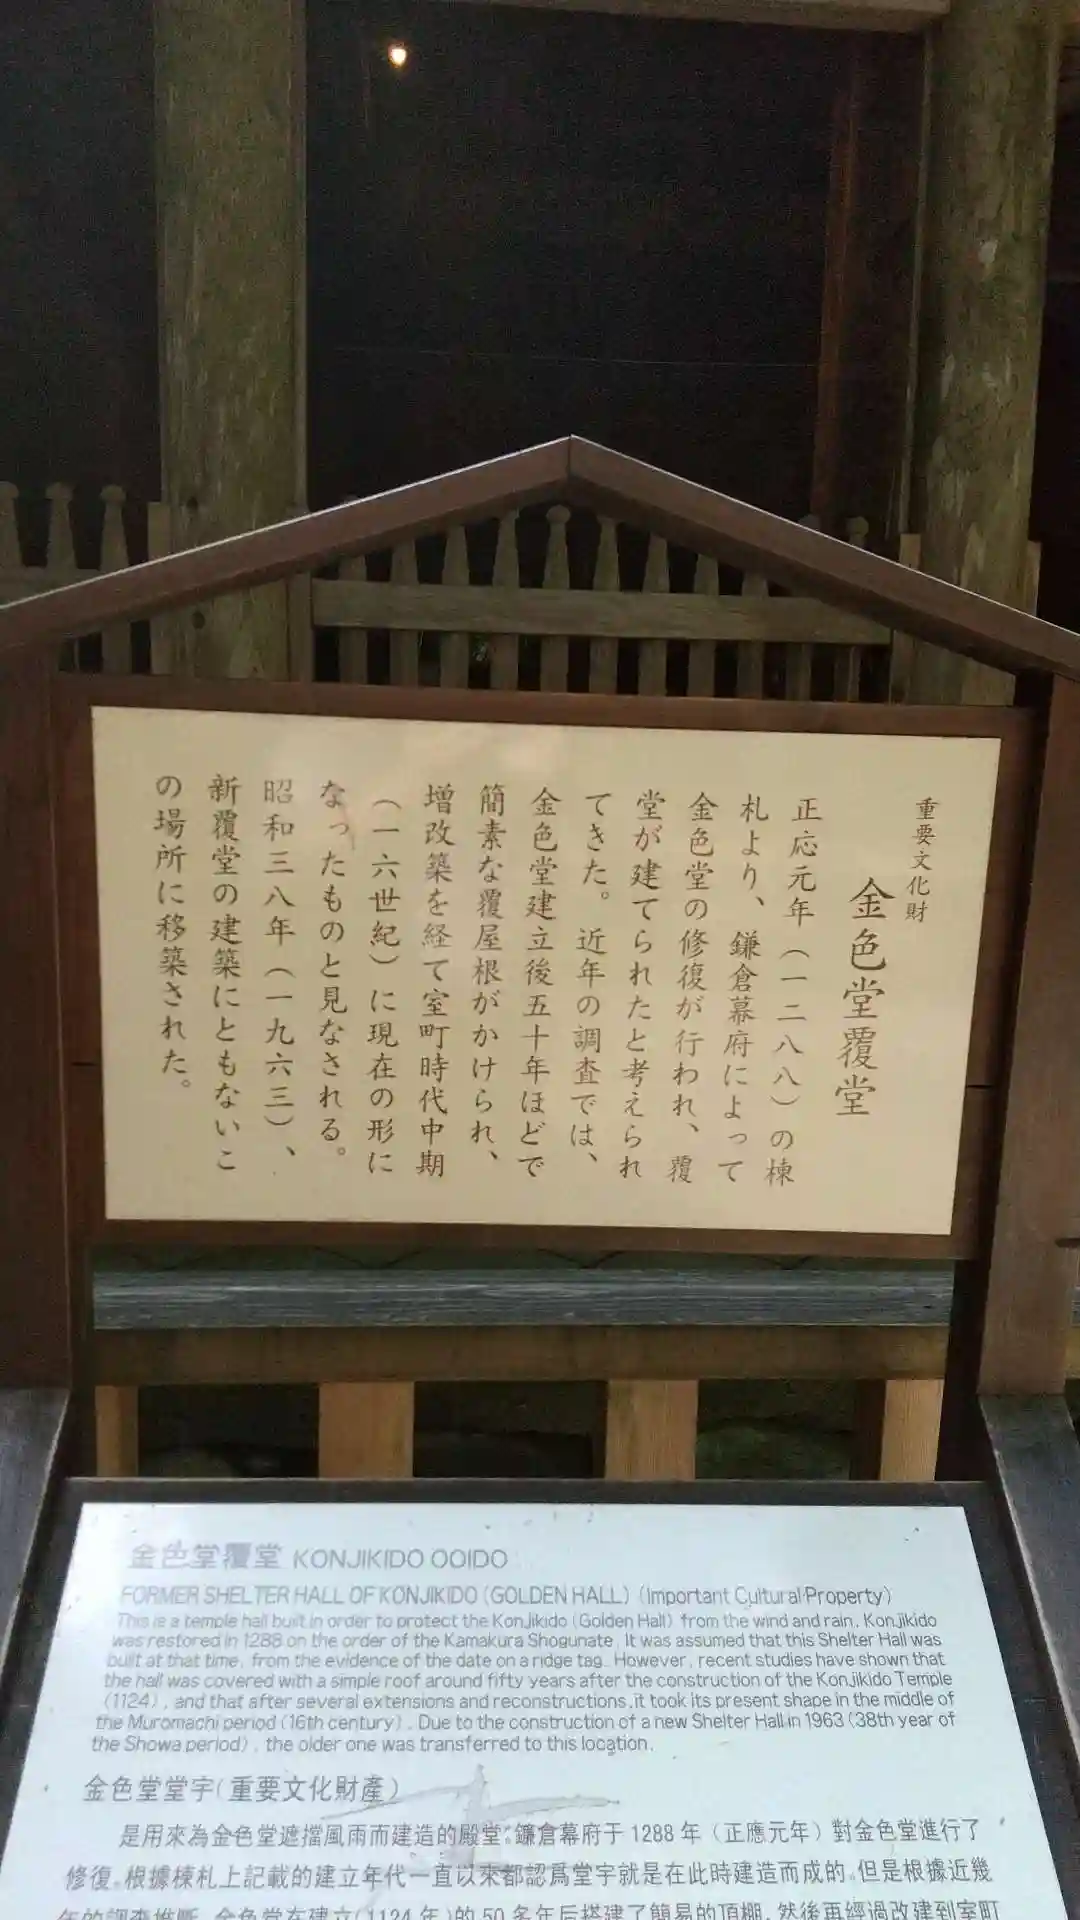 重要文化財
金色堂覆堂
正応元年（一二八八）の棟
札より、鎌倉幕府によって
金色堂の修復が行われ、覆
堂が建てられたと考えられ
てきた。近年の調査では、
金色堂建立後五十年ほどで
簡素な覆屋根がかけられ、
増改築を経て室町時代中期
（一六世紀）に現在の形に
なったものと見なされる。
昭和三八年（一九六三）、
新覆堂の建築にともないこ
の場所に移築された。
金色堂覆堂 KONJIKIDO OOIDO
FORMER SHELTER HALL OF KONJIKIDO (GOLDEN HALL) (Important Cultural Property)
This is a temple hall built in order to protect the Konjikido (Golden Hall) from the wind and rain. Konjikido
was restored in 1288 on the order of the Kamakura Shogunate. It was assumed that this Shelter Hall was
built at that time, from the evidence of the date on a ridge tag. However, recent studies have shown that
the hall was covered with a simple roof around fifty years after the construction of the Konjikido Temple
(1124), and that after several extensions and reconstructions, it took its present shape in the middle of
the Muromachi period (16th century). Due to the construction of a new Shelter Hall in 1963 (38th year of
the Showa period), the older one was transferred to this location.
金色堂堂宇(重要文化財產)
是用來為金色堂遮擋風雨而建造的殿堂。鐮倉幕府于1288年（正應元年）對金色堂進行了
修復。根據棟札上記載的建立年代一直以來都認爲堂宇就是在此時建造而成的。但是根據近幾
年的調查推斷，金色堂在建立(1124年)的50多年后搭建了簡易的頂棚，然後再經過改建到室町